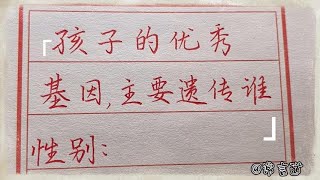 「孩子的优秀
基因,主要遗传谁」
性别: